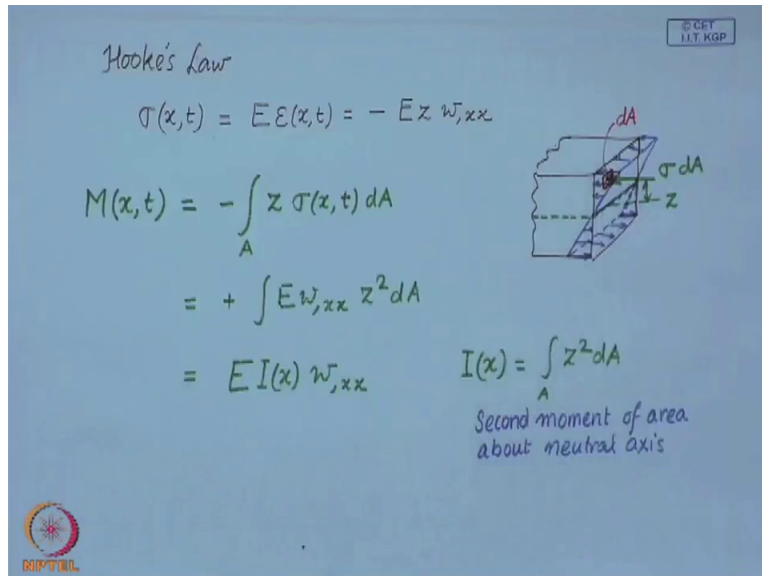 © CET
I.I.T. KGP
Hooke's Law
σ(x,t) = E ε(x,t) = - E z w,xx
dA
σ dA
z
M(x,t) = - ∫ z σ(x,t) dA
A
= + ∫ E w,xx z² dA
= E I(x) w,xx
I(x) = ∫ z² dA
A
Second moment of area
about neutral axis
NPTEL